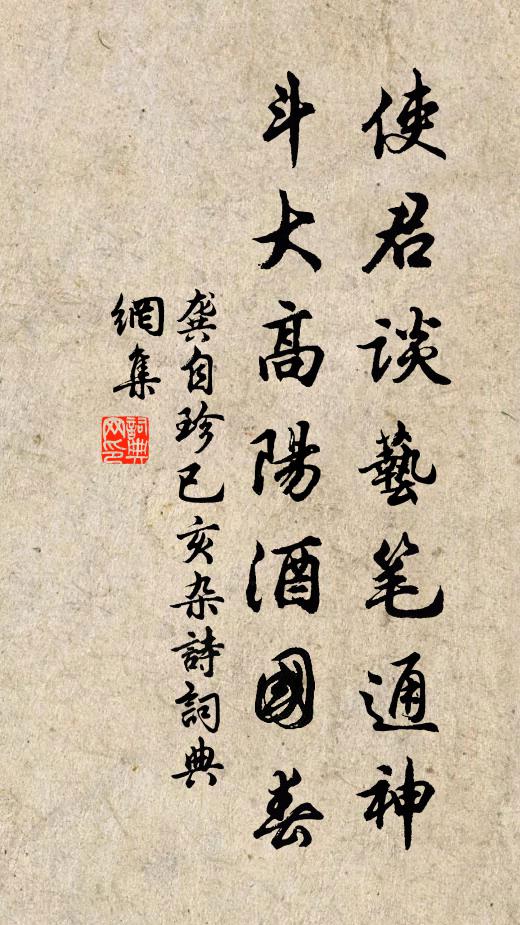 使君谈藝笔通神
斗大高陽酒國春
龔自珍已亥杂詩詞典
網集
詞典
网印